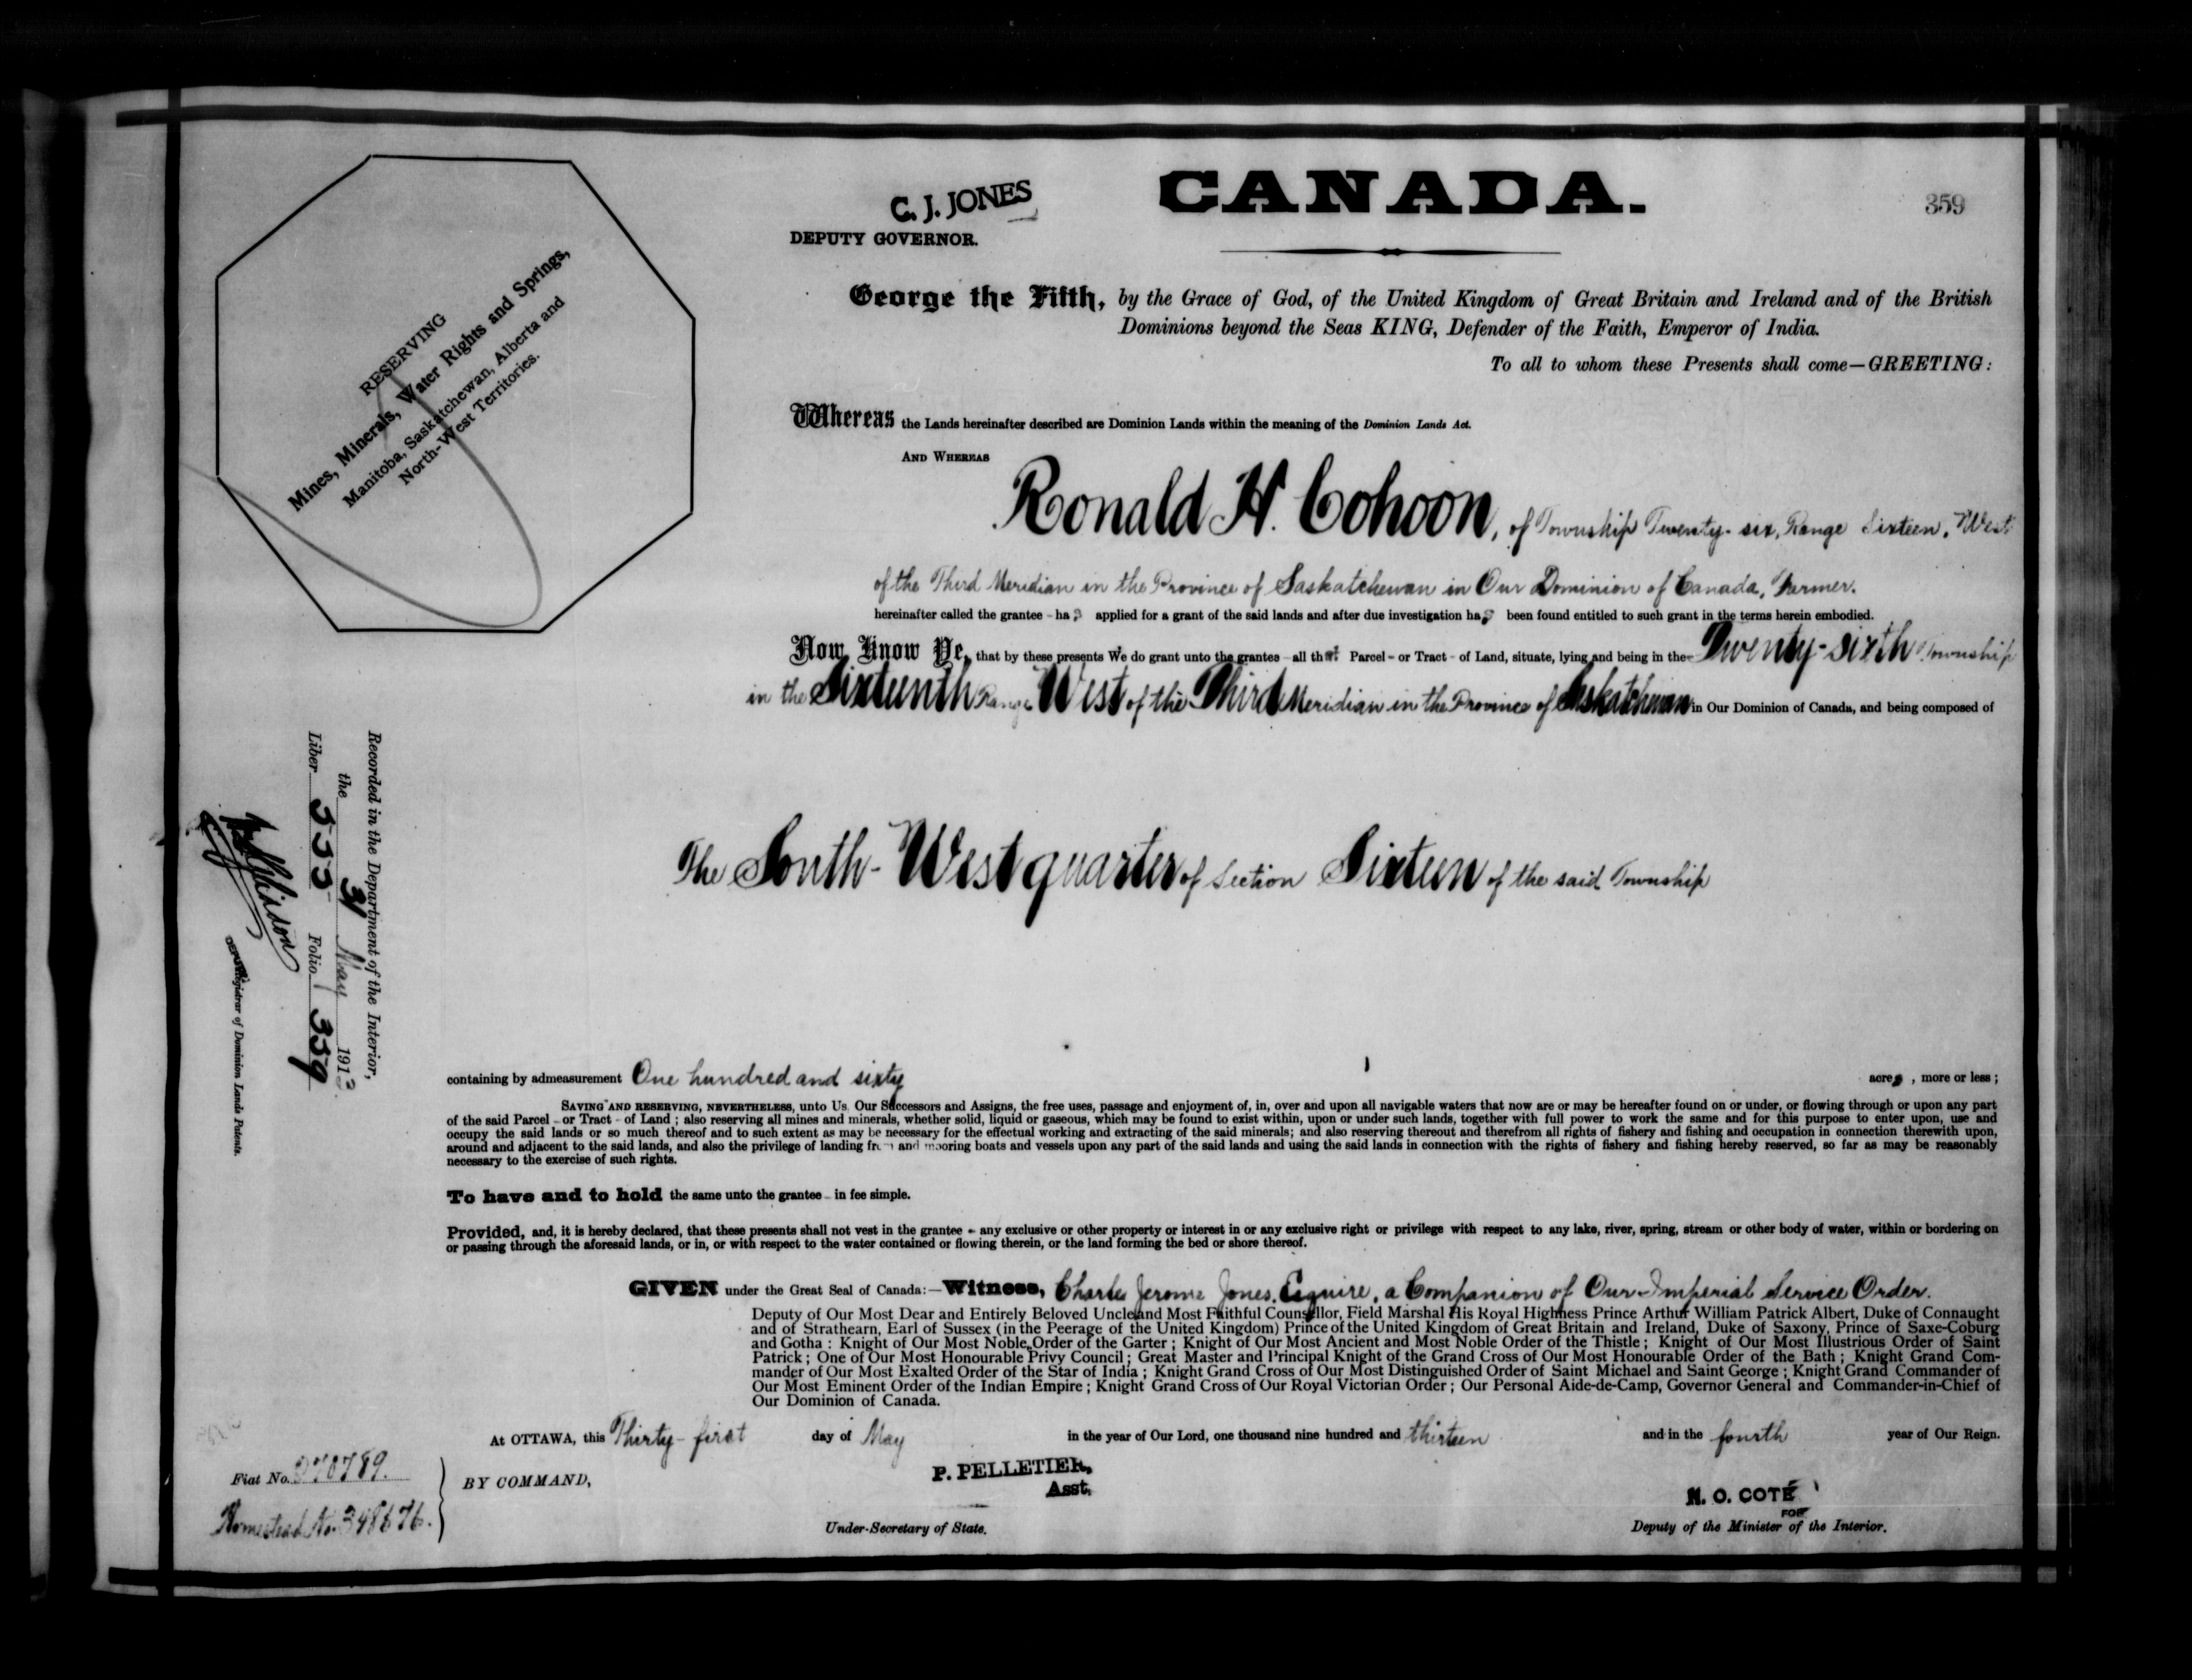 C. J. JONES
DEPUTY GOVERNOR.
CANADA.
359
RESERVING
Mines, Minerals, Water Rights and Springs,
Manitoba, Saskatchewan, Alberta and
North-West Territories.
George the Fifth, by the Grace of God, of the United Kingdom of Great Britain and Ireland and of the British
Dominions beyond the Seas KING, Defender of the Faith, Emperor of India.
To all to whom these Presents shall come—GREETING:
Whereas the Lands hereinafter described are Dominion Lands within the meaning of the Dominion Lands Act.
AND WHEREAS
Ronald H. Cohoon, of Township Twenty-six, Range Sixteen, West
of the Third Meridian in the Province of Saskatchewan in Our Dominion of Canada, Farmer.
hereinafter called the grantee - has applied for a grant of the said lands and after due investigation has been found entitled to such grant in the terms herein embodied.
Now Know Ye, that by these presents We do grant unto the grantee - all that Parcel - or Tract - of Land, situate, lying and being in the Twenty-sixth Township
in the Sixteenth Range West of the Third Meridian in the Province of Saskatchewan in Our Dominion of Canada, and being composed of
The South-West quarter of Section Sixteen of the said Township
Recorded in the Department of the Interior,
the 31 May 1913
Liber 555 Folio 359
DEPUTY Registrar of Dominion Lands Patents.
containing by admeasurement One hundred and sixty acres, more or less;
SAVING AND RESERVING, NEVERTHELESS, unto Us Our Successors and Assigns, the free uses, passage and enjoyment of, in, over and upon all navigable waters that now are or may be hereafter found on or under, or flowing through or upon any part
of the said Parcel - or Tract - of Land; also reserving all mines and minerals, whether solid, liquid or gaseous, which may be found to exist within, upon or under such lands, together with full power to work the same and for this purpose to enter upon, use and
occupy the said lands or so much thereof and to such extent as may be necessary for the effectual working and extracting of the said minerals; and also reserving thereout and therefrom all rights of fishery and fishing and occupation in connection therewith upon,
around and adjacent to the said lands, and also the privilege of landing from and mooring boats and vessels upon any part of the said lands and using the said lands in connection with the rights of fishery and fishing hereby reserved, so far as may be reasonably
necessary to the exercise of such rights.
To have and to hold the same unto the grantee - in fee simple.
Provided, and, it is hereby declared, that these presents shall not vest in the grantee - any exclusive or other property or interest in or any exclusive right or privilege with respect to any lake, river, spring, stream or other body of water, within or bordering on
or passing through the aforesaid lands, or in, or with respect to the water contained or flowing therein, or the land forming the bed or shore thereof.
GIVEN under the Great Seal of Canada:—Witness, Charles Jerome Jones, Esquire, a Companion of Our Imperial Service Order.
Deputy of Our Most Dear and Entirely Beloved Uncle and Most Faithful Counsellor, Field Marshal His Royal Highness Prince Arthur William Patrick Albert, Duke of Connaught
and of Strathearn, Earl of Sussex (in the Peerage of the United Kingdom) Prince of the United Kingdom of Great Britain and Ireland, Duke of Saxony, Prince of Saxe-Coburg
and Gotha: Knight of Our Most Noble Order of the Garter; Knight of Our Most Ancient and Most Noble Order of the Thistle; Knight of Our Most Illustrious Order of Saint
Patrick; One of Our Most Honourable Privy Council; Great Master and Principal Knight of the Grand Cross of Our Most Honourable Order of the Bath; Knight Grand Com-
mander of Our Most Exalted Order of the Star of India; Knight Grand Cross of Our Most Distinguished Order of Saint Michael and Saint George; Knight Grand Commander of
Our Most Eminent Order of the Indian Empire; Knight Grand Cross of Our Royal Victorian Order; Our Personal Aide-de-Camp, Governor General and Commander-in-Chief of
Our Dominion of Canada.
At OTTAWA, this Thirty-first day of May in the year of Our Lord, one thousand nine hundred and thirteen and in the fourth year of Our Reign.
Fiat No. 270789.
Homestead No. 348676.
BY COMMAND,
P. PELLETIER,
Asst.
Under-Secretary of State.
N. O. COTÉ
FOR
Deputy of the Minister of the Interior.